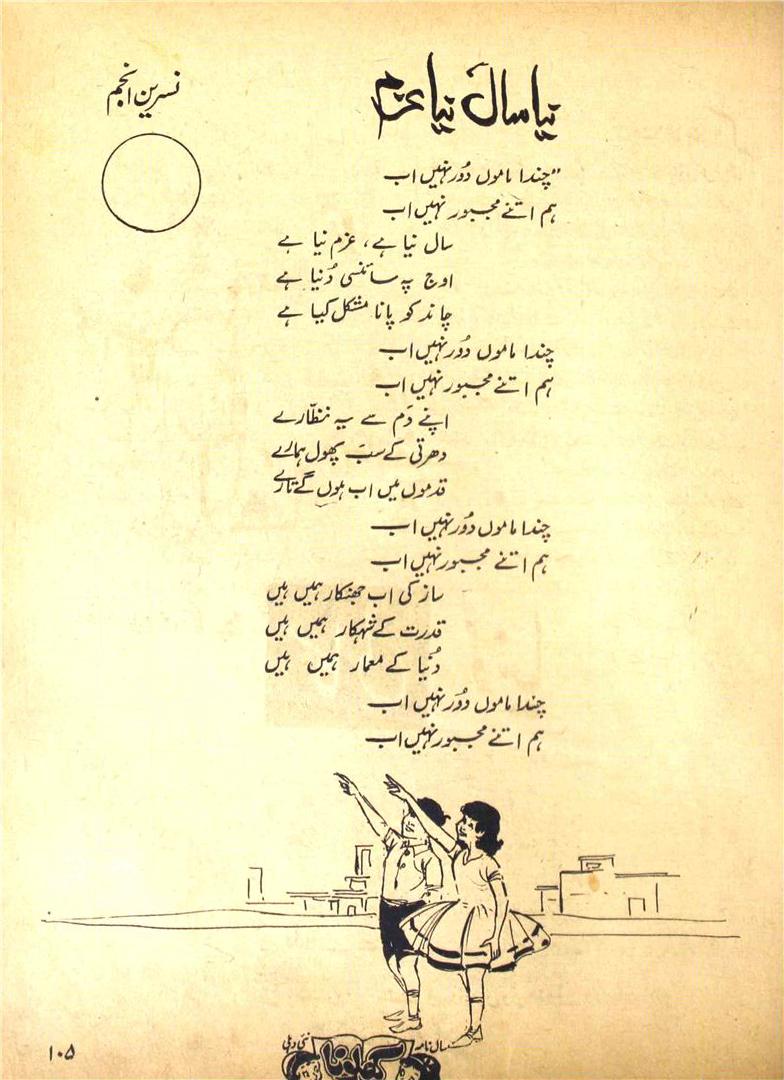 نیا سال نیا عزم
نسرین انجم
"چندا ماموں دُور نہیں اب
ہم اتنے مجبور نہیں اب
سال نیا ہے، عزم نیا ہے
اوج پہ سائنسی دُنیا ہے
چاند کو پانا مشکل کیا ہے
چندا ماموں دُور نہیں اب
ہم اتنے مجبور نہیں اب
اپنے دَم سے یہ نظّارے
دھرتی کے سب پھول ہمارے
قدموں میں اب ہوں گے تارے
چندا ماموں دُور نہیں اب
ہم اتنے مجبور نہیں اب
ساز کی اب جھنکار ہمیں ہیں
قدرت کے شہکار ہمیں ہیں
دُنیا کے معمار ہمیں ہیں
چندا ماموں دُور نہیں اب
ہم اتنے مجبور نہیں اب
سال نامہ کھلونا نئی دہلی
۱۰۵